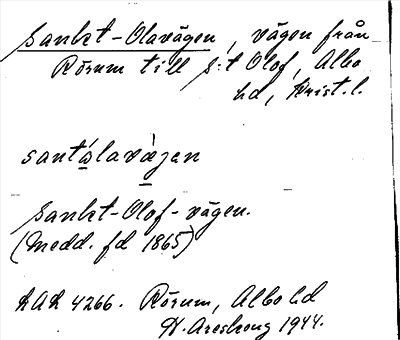 Sankt-Olavägen, vägen från
Rörum till S:t Olof, Albo
hd, Krist. l.
santálavæ̀gen
Sankt-Olof-vägen.
(Medd. fd 1865)
LAL 4266. Rörum, Albo hd
H. Areskoug 1944.